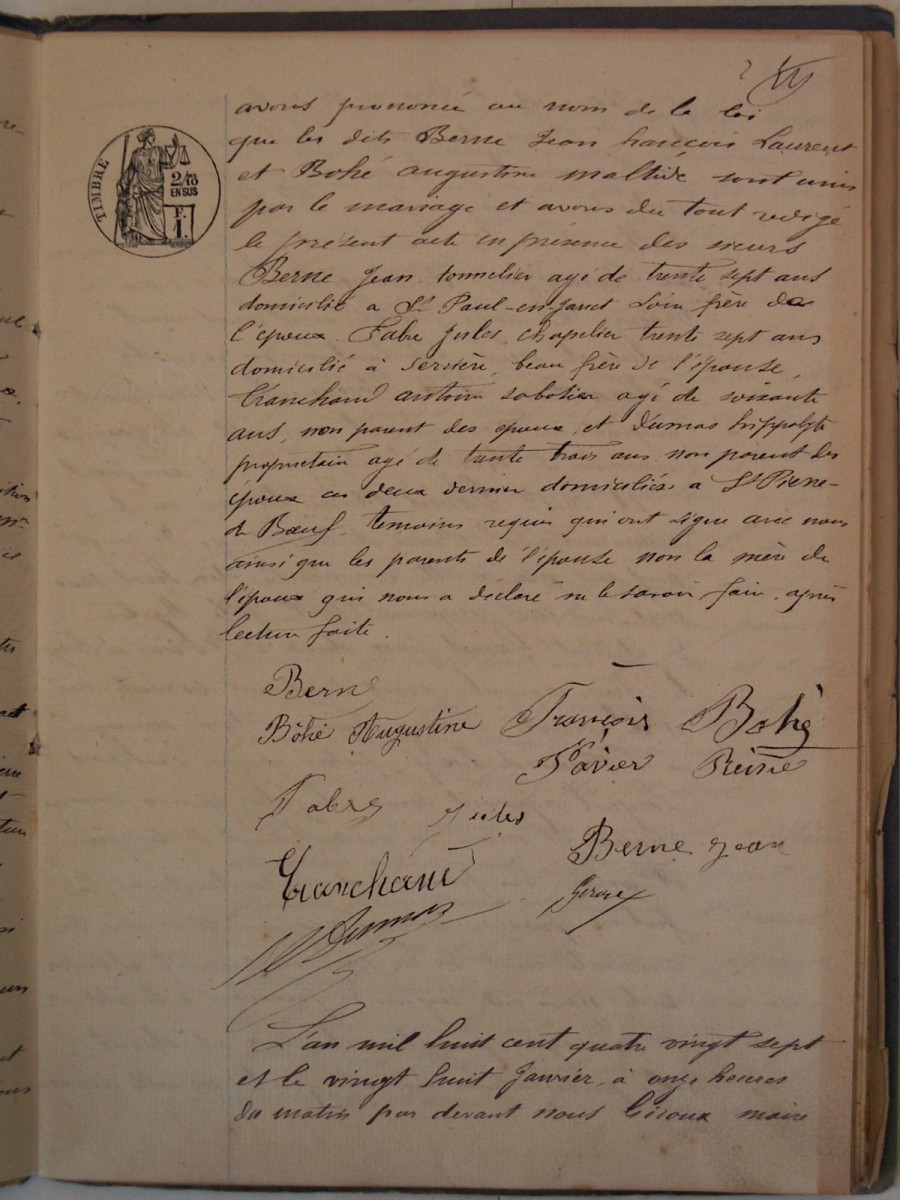 2
TIMBRE
2/10
EN SUS
F.
1.
avons prononcé au nom de la loi
que les dits Berne Jean françois Laurent
et Bohé augustine maltide sont unis
par le mariage et avons du tout redigé
le présent acte en présence des sieurs
Berne Jean tonnelier agé de trente sept ans
domicilié a St Paul-en-Jaret Loire frère de
l'époux. Fabre Jules, chapelier trente sept ans
domicilié à serrière, beau frère de l'épouse,
Tranchand antoine sabotier agé de soixante
ans, non parent des epoux, et Dumas hippolyte
proprietaire agé de trente trois ans non parent des
époux ces deux dernier domiciliés a St Pierre-
de Bœuf, temoins requis qui ont signe avec nous
ainsi que les parents de l'épouse non la mère de
l'époux qui nous a déclaré ne le savoir faire, après
lecture faite.
Berne
Bohé Augustine François Bohé
Xavier Reine
Fabre Jules
Berne Jean
Tranchand
Giroux
Dumas
L'an mil huit cent quatre vingt sept
et le vingt huit Janvier, à onze heures
du matin par devant nous Giroux maire